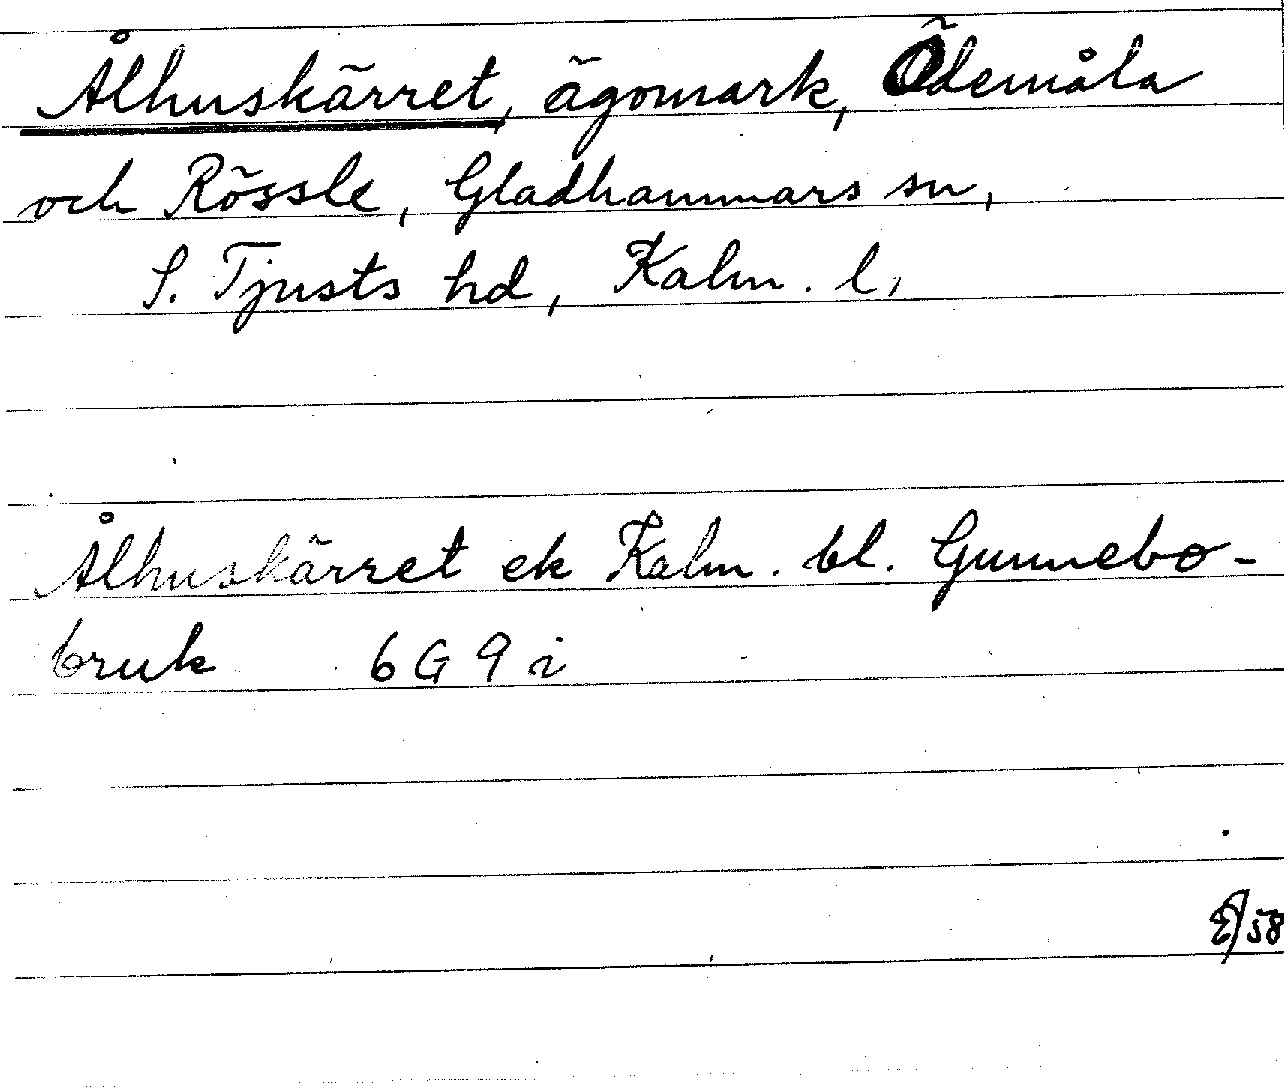 Ålhuskärret, ägomark, Ödemåla
och Rössle, Gladhammars sn,
S. Tjusts hd, Kalm. l,
Ålhuskärret ek Kalm. bl. Gunnebo-
bruk 6G9i
/58